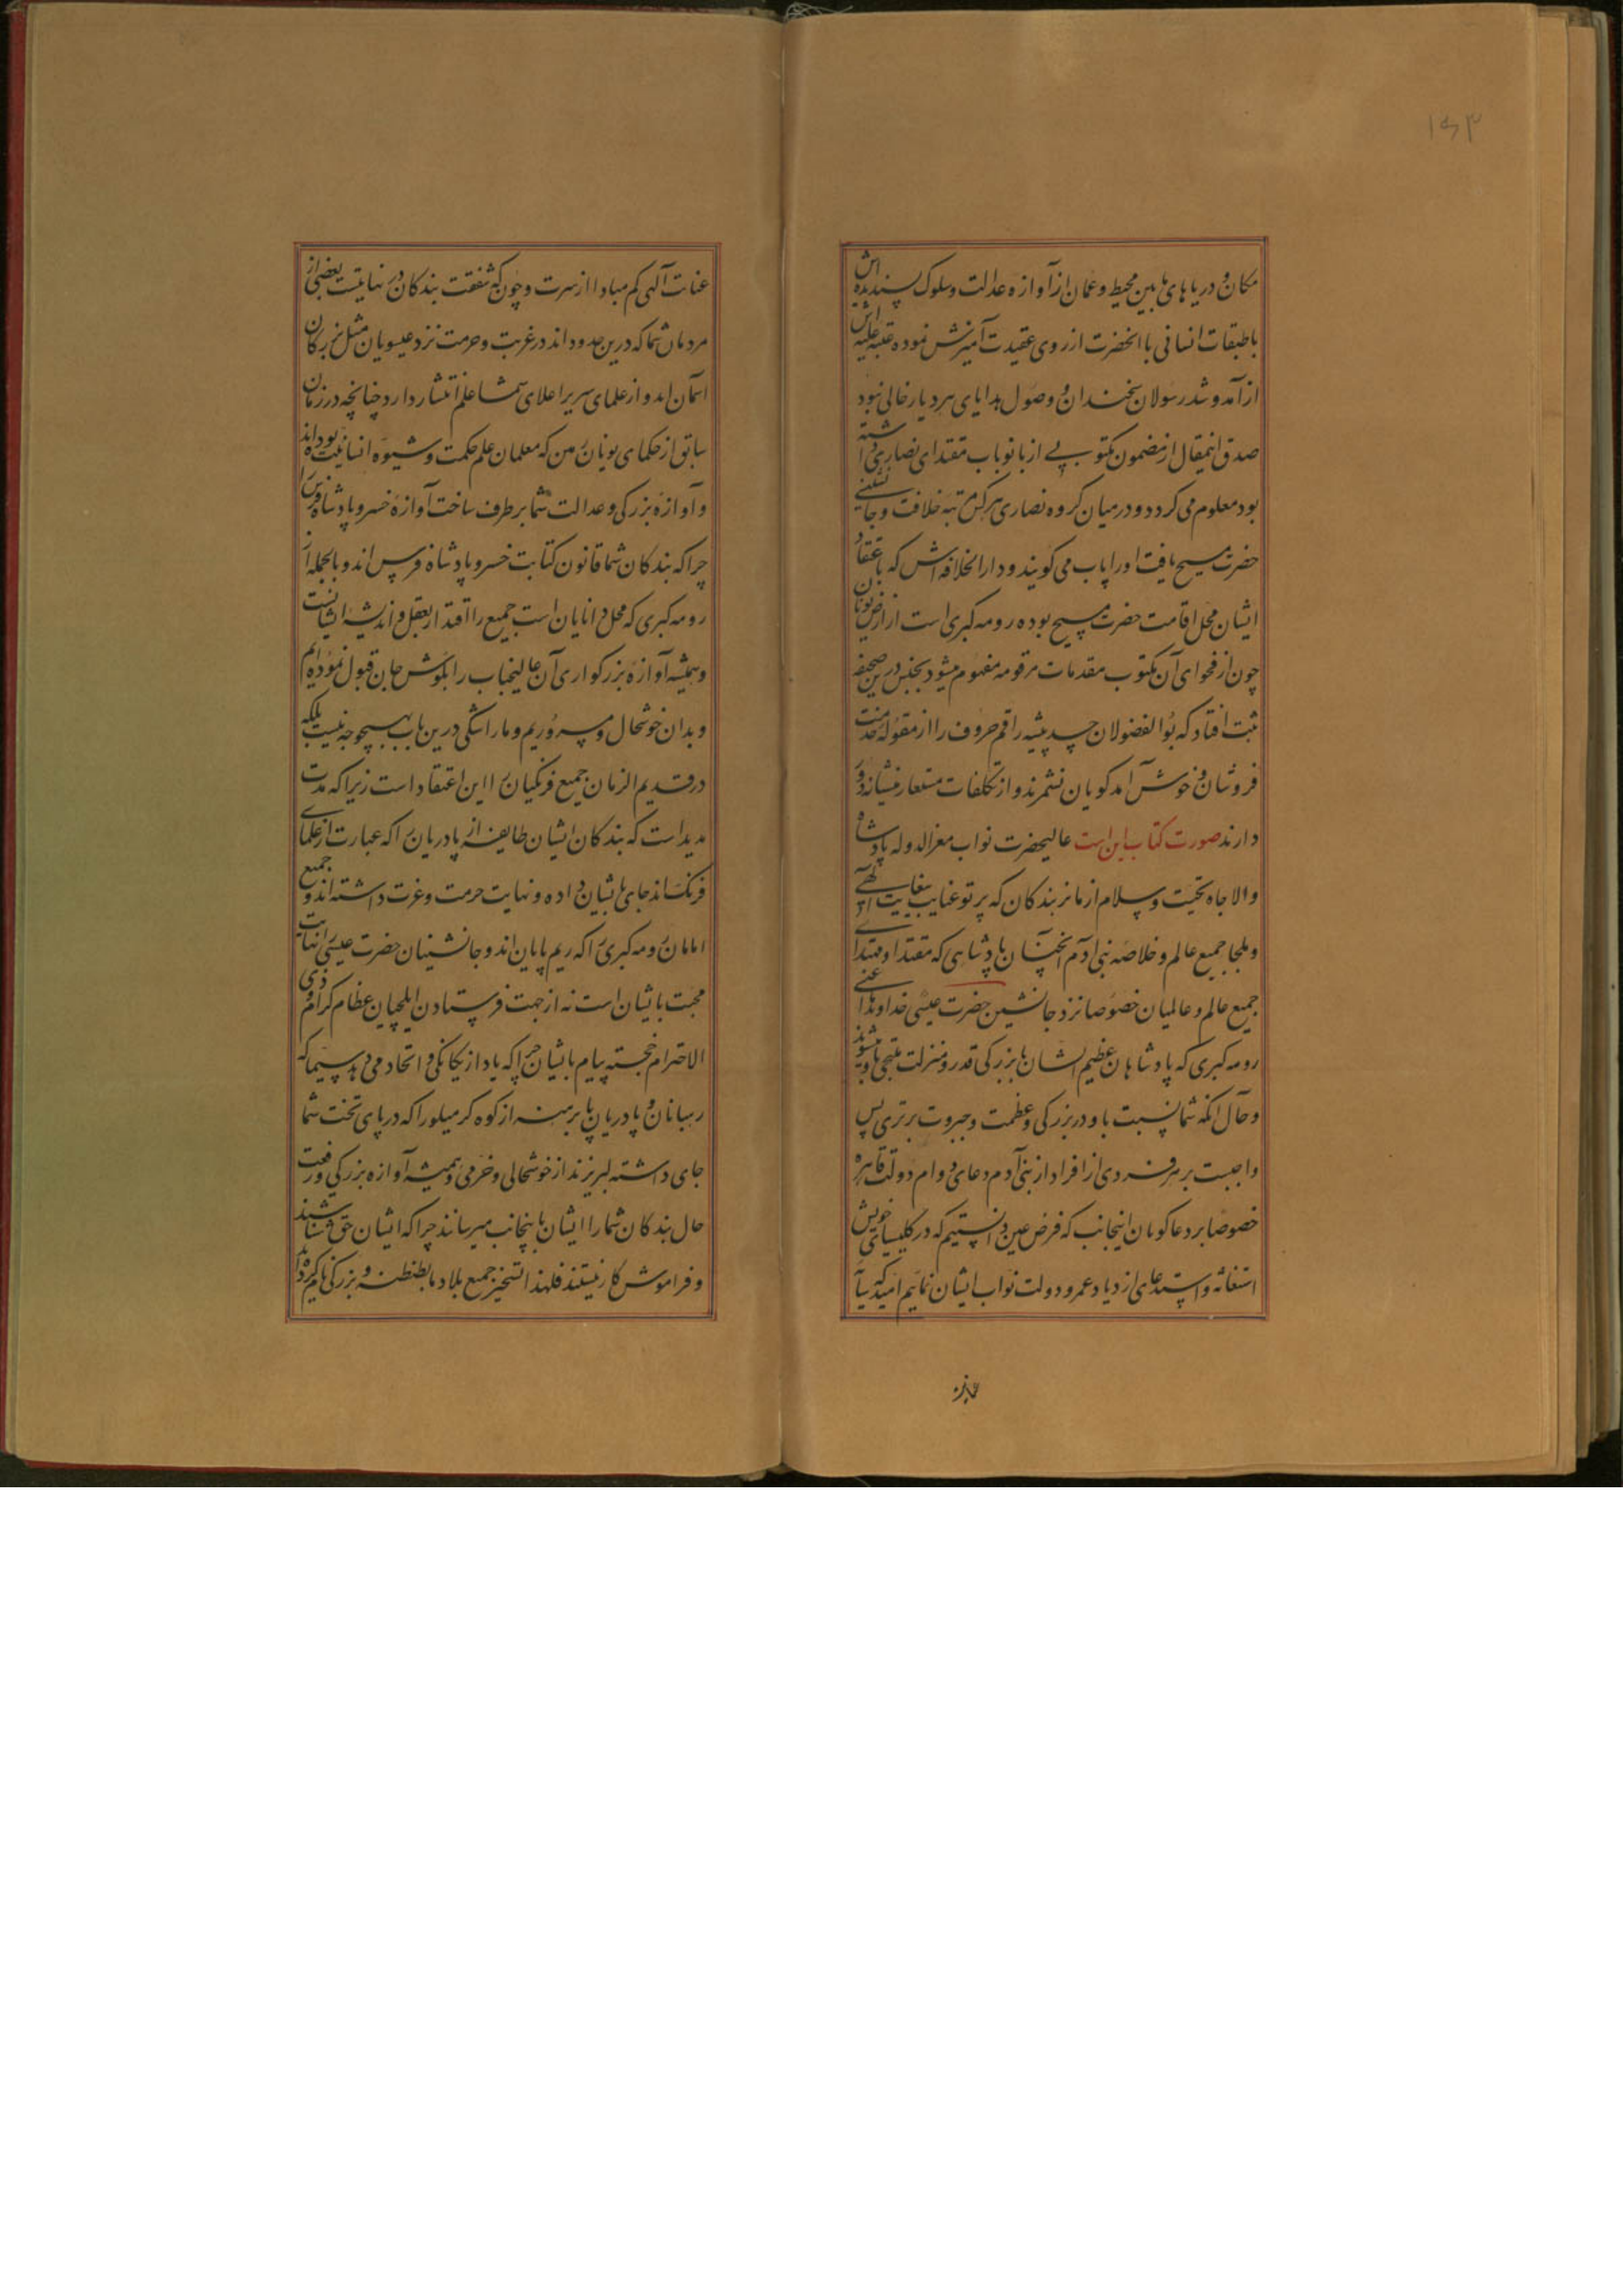 ۱۶۳
مکان و دریاهای مابین محیط و عمان از آوازه عدالت و سلوک پسندیده اش
با طبقات انسانی با انحضرت از روی عقیدت آمیزش نموده عتبه علیه اش
از آمد و شد رسولان سخندان و وصول هدایای هر دیار خالی نبود
صدق اینمقال از مضمون مکتوبی از بانو باب مقتدای نصاری داشته
بود معلوم می کردد و در میان کروه نصاری هر کس مرتبه خلافت و جانشینی
حضرت مسیح یافت اورا پاپ می کویند و دار الخلافه اش که باعتقاد
ایشان محل اقامت حضرت مسیح بوده رومه کبری است از ارض یونان
چون از فحوای آن مکتوب مقدمات مرقومه مفهوم میشود بجنس درین صحیفه
ثبت افتاد که بوالفضولان حسد پیشه راقم حروف را از مقوله خدمت
فروشان و خوش آمد کویان نشمرند و از تکلفات مستعار منشیانه دور
دارند صورت کتاب این است عالیحضرت نواب معز الدوله پادشاه
والا جاه تحیت و سلام از ما نزد بندکان که پرتو عنایت بیغایت آلهی
و ملجا جمیع عالم و خلاصه بنی ادم آنچنان پادشاهی که مقتدا و مهتدای
جمیع عالم و عالمیان خصوصا نزد جانشین حضرت عیسی خداوند ما اعنی
رومه کبری که پادشاهان عظیم الشان با بزرکی قدر و منزلت ملتجی باو میشوند
و حال انکه شما نسبت باو در بزرکی و عظمت و جبروت برتری پس
واجبست بر هر فردی از افراد از بنی آدم دعای دوام دولت قاهره
خصوصا بر دعاکویان اینجانب که فرض عین دانستیم که در کلیسای خویش
استغاثه و استدعای ازدیاد عمر و دولت نواب ایشان نمائیم امید که سایه
عنایت
عنایت آلهی کم مباد از سرت و چون که شفقت بندکان در نهایتست بعضی از
مردمان شما که درین حدود اند در غربت و حرمت نزد عیسویان مثل بزرکان
آسمان اند و از علمای سریر اعلای شما علم انتشار دارد چنانچه در زمان
سابق از حکمای یونان زمین که معلمان علم حکمت و شیوه انسانیت بوده اند
و آوازه بزرکی و عدالت شما بر طرف ساخت آوازه خسرو پادشاه فرس را
چرا که بندکان شما قانون کتابت خسرو پادشاه فرس اند و بالجمله از
رومه کبری که محل دانایان است جمیع را اقتدا بعقل و اندیشه ایشانست
و همیشه آوازه بزرکواری آن عالیجناب را بکوش جان قبول نموده ایم
و بدان خوشحال و مسروریم و ما را شکی درین باب بهیچوجه نیست بلکه
در قدیم الزمان جمیع فرنکیان را این اعتقاد است زیرا که مدت
مدید است که بندکان ایشان طایفه از پادریان را که عبارت از علمای
فرنک اند جای بایشان داده و نهایت حرمت و عزت داشته اند و جمیع
امامان رومه کبری را که ریم پاپان اند و جانشینان حضرت عیسی را نهایت
محبت بایشان است نه از جهت فرستادن ایلچیان عظام کرام و ذوی
الاحترام خجسته پیام بایشان چرا که یاد از یکانکی و اتحاد می دهد سیما که
رهبانان و پادریان پا برهنه از کوه کرمیلو را که در پای تخت شما
جای داشته لبریزند از خوشحالی و خرمی و همیشه آوازه بزرکی و رفعت
حال بندکان شما را ایشان باینجانب میرسانند چرا که ایشان حق شناسند
و فراموش کار نیستند فلهذا تسخیر جمیع بلاد ما بطنطنه و بزرکی نام کرده اید